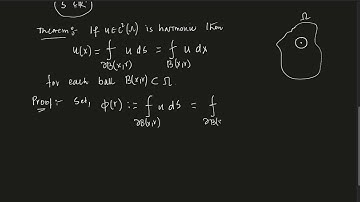 Theorem:- If u ∈ C²(Ω) is harmonic then
u(x) = ⨍_{∂B(x,r)} u ds = ⨍_{B(x,r)} u dx
for each ball B(x,r) ⊂ Ω.
Proof:- Set, φ(r) := ⨍_{∂B(x,r)} u ds = ⨍_{∂B(
Ω